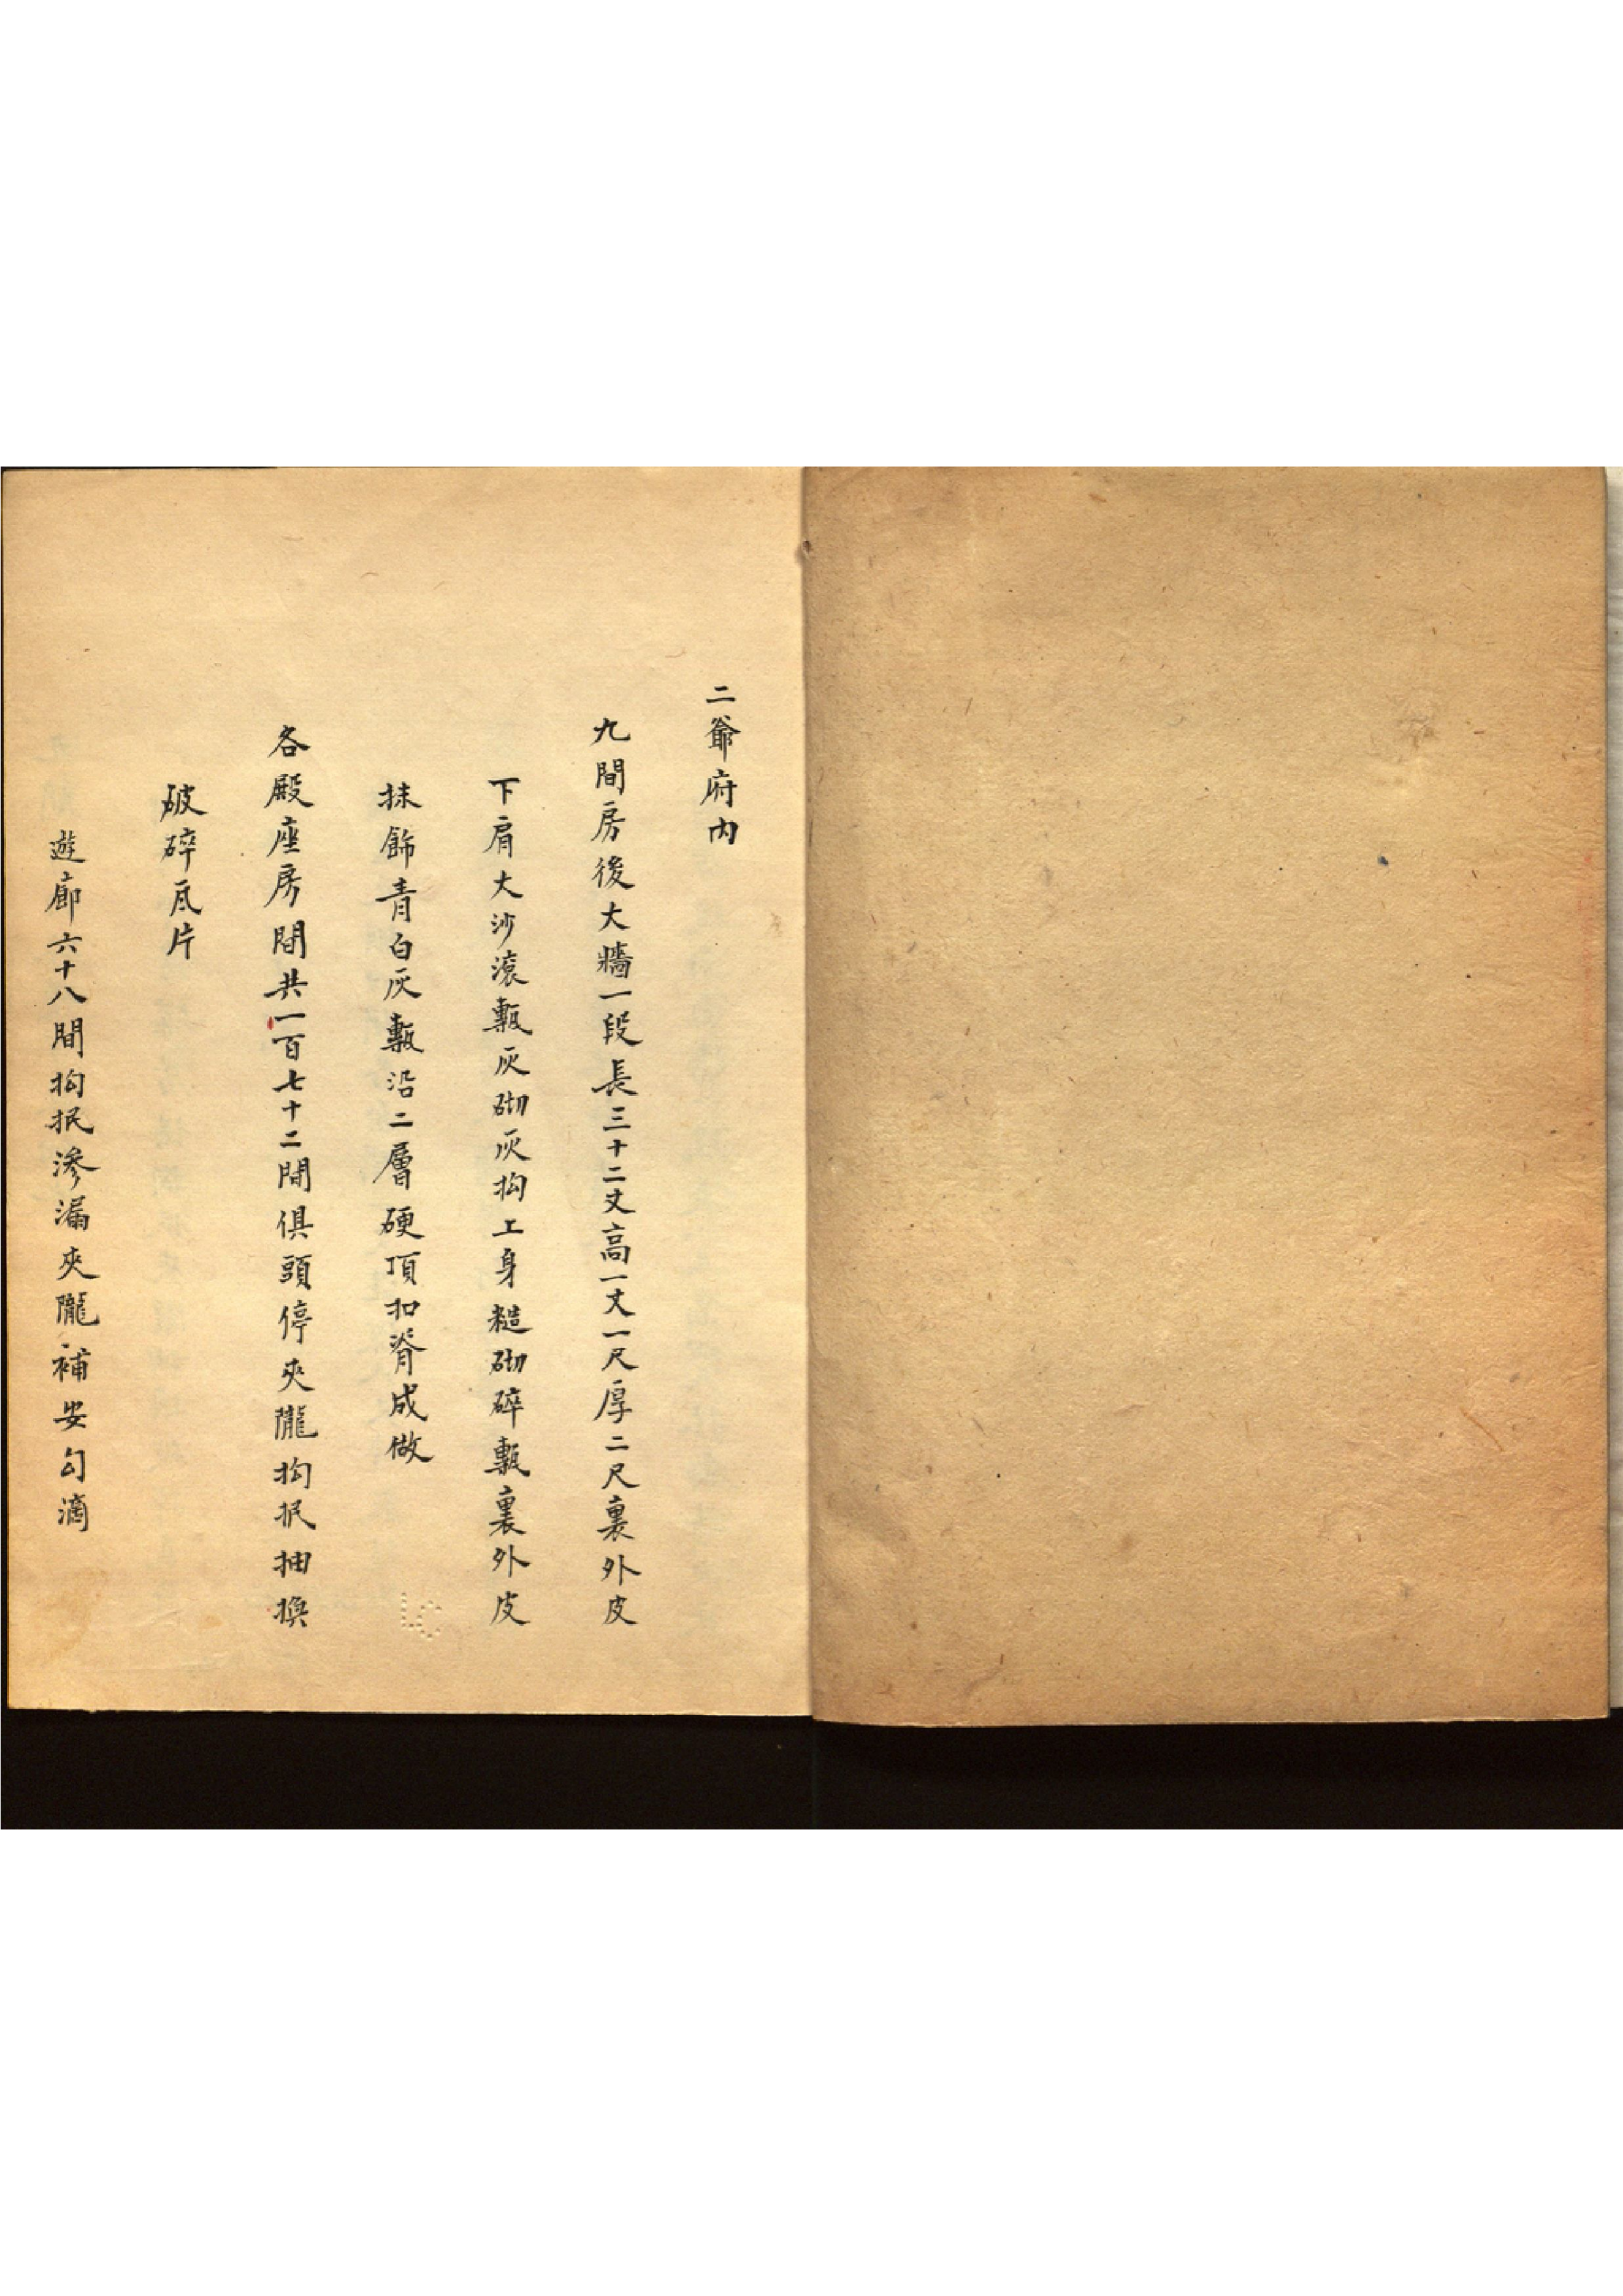 二爺府内
九間房後大墻一段長三十二丈高一丈一尺厚二尺裏外皮
下肩大沙滚甎灰砌灰抅上身糙砌碎甎裏外皮
抹飾青白灰甎沿二層硬頂扣脊成做
各殿座房間共一百七十二間俱頭停夾隴抅抿抽換
破碎瓦片
遊廊六十八間抅抿滲漏夾隴補安勾滴
LC